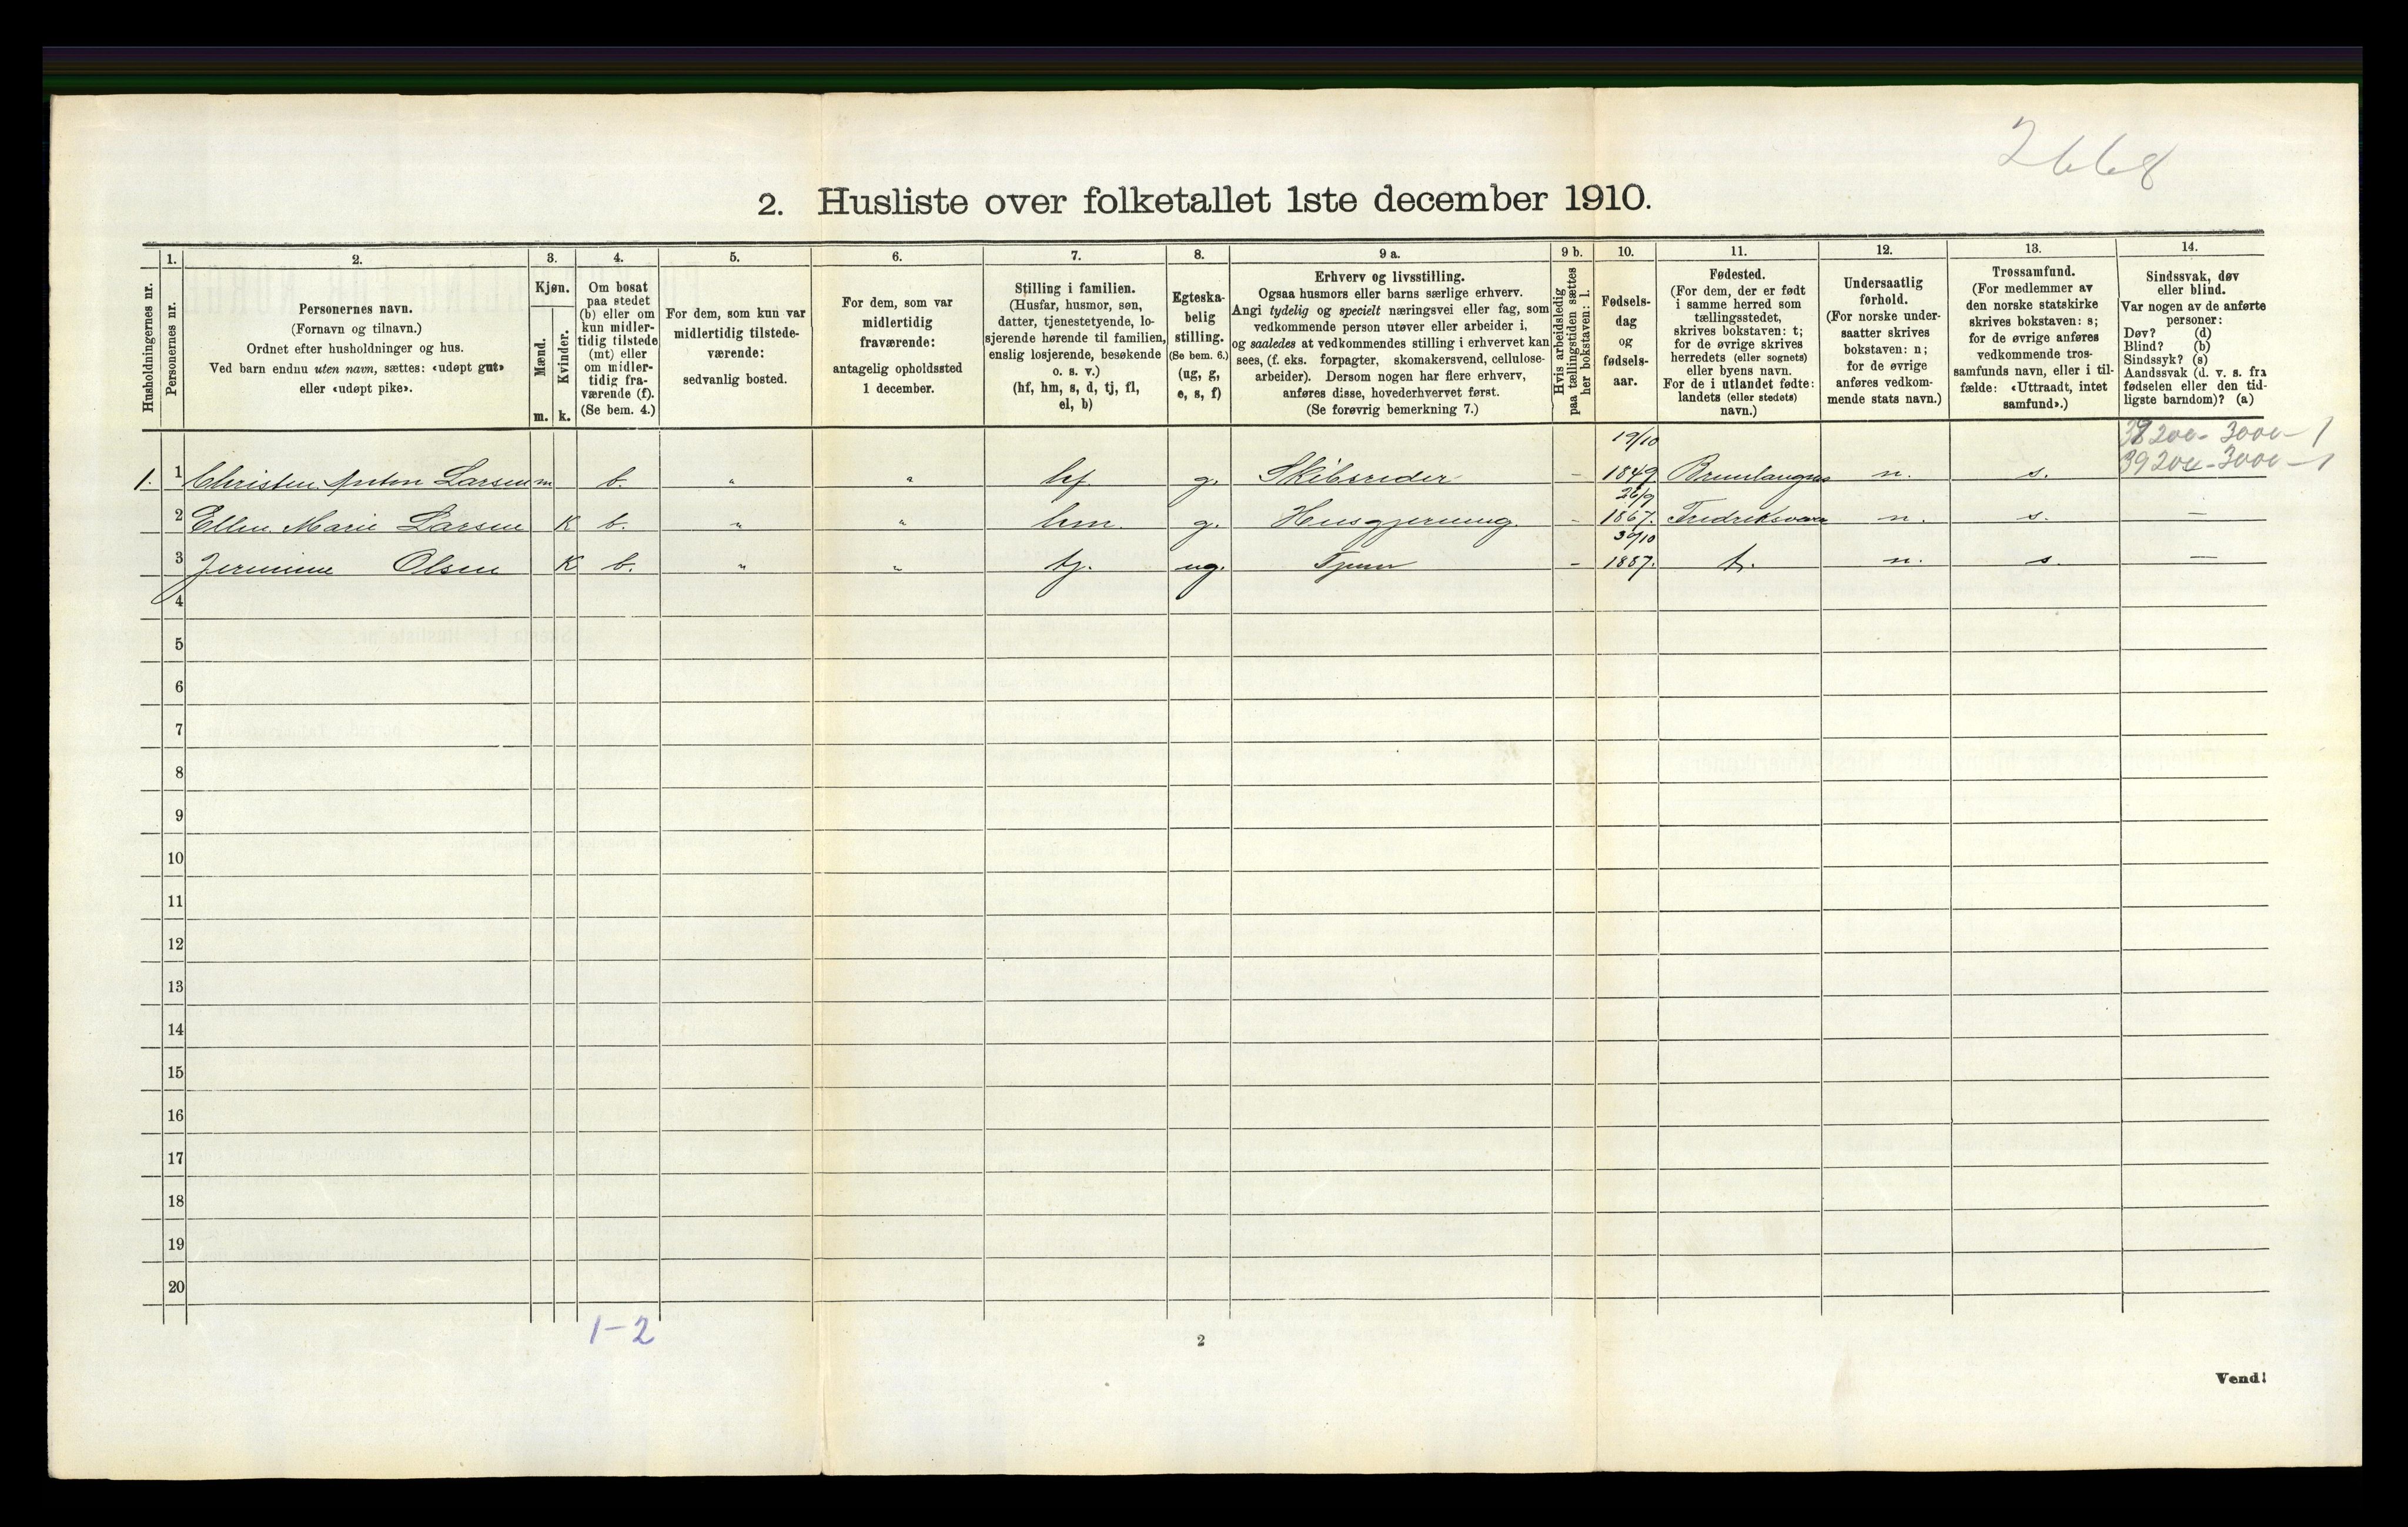 2668
2. Husliste over folketallet 1ste december 1910.
Husholdningernes nr.
1.
Personernes nr.
2.
Personernes navn.
(Fornavn og tilnavn.)
Ordnet efter husholdninger og hus.
Ved barn endnu uten navn, sættes: «udøpt gut»
eller «udøpt pike».
3.
Kjøn.
Mænd.
m.
Kvinder.
k.
4.
Om bosat
paa stedet
(b) eller om
kun midler-
tidig tilstede
(mt) eller
om midler-
tidig fra-
værende (f).
(Se bem. 4.)
5.
For dem, som kun var
midlertidig tilstede-
værende:
sedvanlig bosted.
6.
For dem, som var
midlertidig
fraværende:
antagelig opholdssted
1 december.
7.
Stilling i familien.
(Husfar, husmor, søn,
datter, tjenestetyende, lo-
sjerende hørende til familien,
enslig losjerende, besøkende
o. s. v.)
(hf, hm, s, d, tj, fl,
el, b)
8.
Egteska-
belig
stilling.
(Se bem. 6.)
(ug, g,
e, s, f)
9 a.
Erhverv og livsstilling.
Ogsaa husmors eller barns særlige erhverv.
Angi tydelig og specielt næringsvei eller fag, som
vedkommende person utøver eller arbeider i,
og saaledes at vedkommendes stilling i erhvervet kan
sees, (f. eks. forpagter, skomakersvend, cellulose-
arbeider). Dersom nogen har flere erhverv,
anføres disse, hovederhvervet først.
(Se forøvrig bemerkning 7.)
9 b.
Hvis arbeidsledig
paa tællingstiden sættes
her bokstaven: l.
10.
Fødsels-
dag
og
fødsels-
aar.
11.
Fødested.
(For dem, der er født
i samme herred som
tællingsstedet,
skrives bokstaven: t;
for de øvrige skrives
herredets (eller sognets)
eller byens navn.
For de i utlandet fødte:
landets (eller stedets)
navn.)
12.
Undersaatlig
forhold.
(For norske under-
saatter skrives
bokstaven: n;
for de øvrige
anføres vedkom-
mende stats navn.)
13.
Trossamfund.
(For medlemmer av
den norske statskirke
skrives bokstaven: s;
for de øvrige anføres
vedkommende tros-
samfunds navn, eller i til-
fælde: «Uttraadt, intet
samfund».)
14.
Sindssvak, døv
eller blind.
Var nogen av de anførte
personer:
Døv? (d)
Blind? (b)
Sindssyk? (s)
Aandssvak (d. v. s. fra
fødselen eller den tid-
ligste barndom)? (a)
38200 - 3000 - 1
39200 - 3000 - 1
1. 1 Christen Anton Larsen m b. " " hf. g. Skibsreder - 19/10 1849. Brunlangnes n. s.
2 Ellen Marie Larsen K b. " " hm. g. Husgjerning. - 26/9 1867. Fredriksværn n. s. —
3 Jermine Olsen K b. " " tj. ug. Tjener - 30/10 1887. t. n. s. —
4
5
6
7
8
9
10
11
12
13
14
15
16
17
18
19
20
1-2
2
Vend!